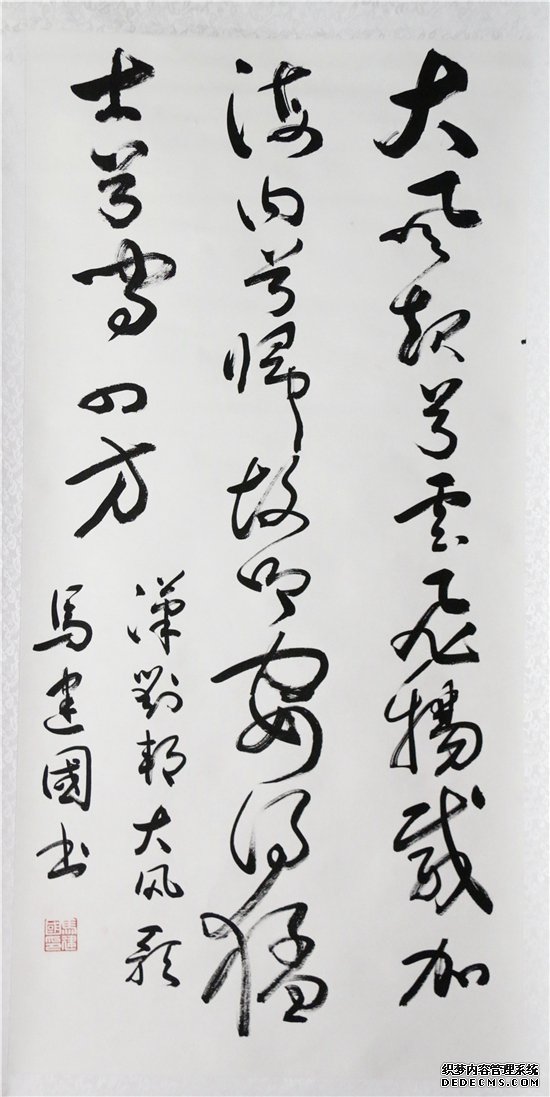 大風起兮雲飛揚威加
海内兮歸故鄉安得猛
士兮守四方
漢劉邦大风歌
馬建國書
織梦内容管理系统
DEDECMS.COM